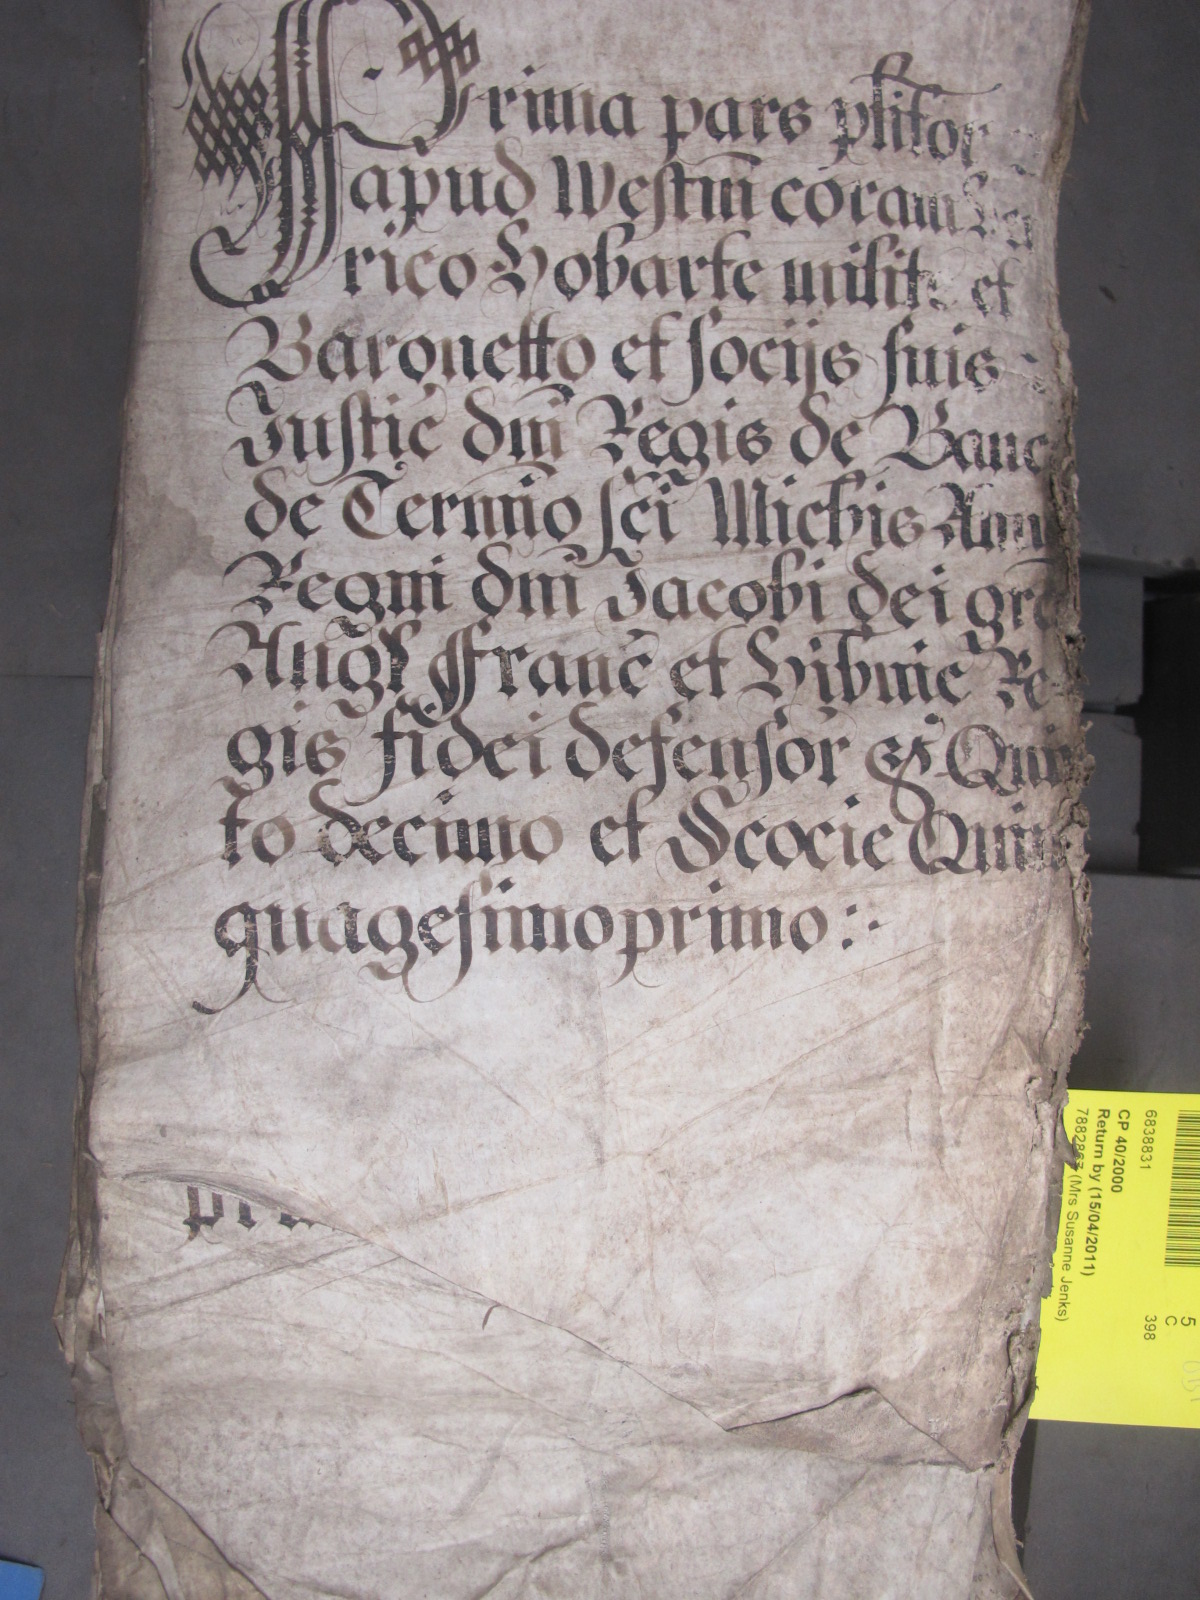 Prima pars plitor
apud Westm coram Hen
rico Hobarte milite et
Baronetto et socijs suis
Justic dni Regis de Banc
de Termino sci Michis Anno
Regni dni Jacobi dei gra
Angl Franc et Hibnie Re-
gis fidei defensor &c Quin
to decimo et Scocie Quin
quagesimoprimo :·
pri
6838831
CP 40/2000
Return by (15/04/2011)
7882867 (Mrs Susanne Jenks)
5
C
398